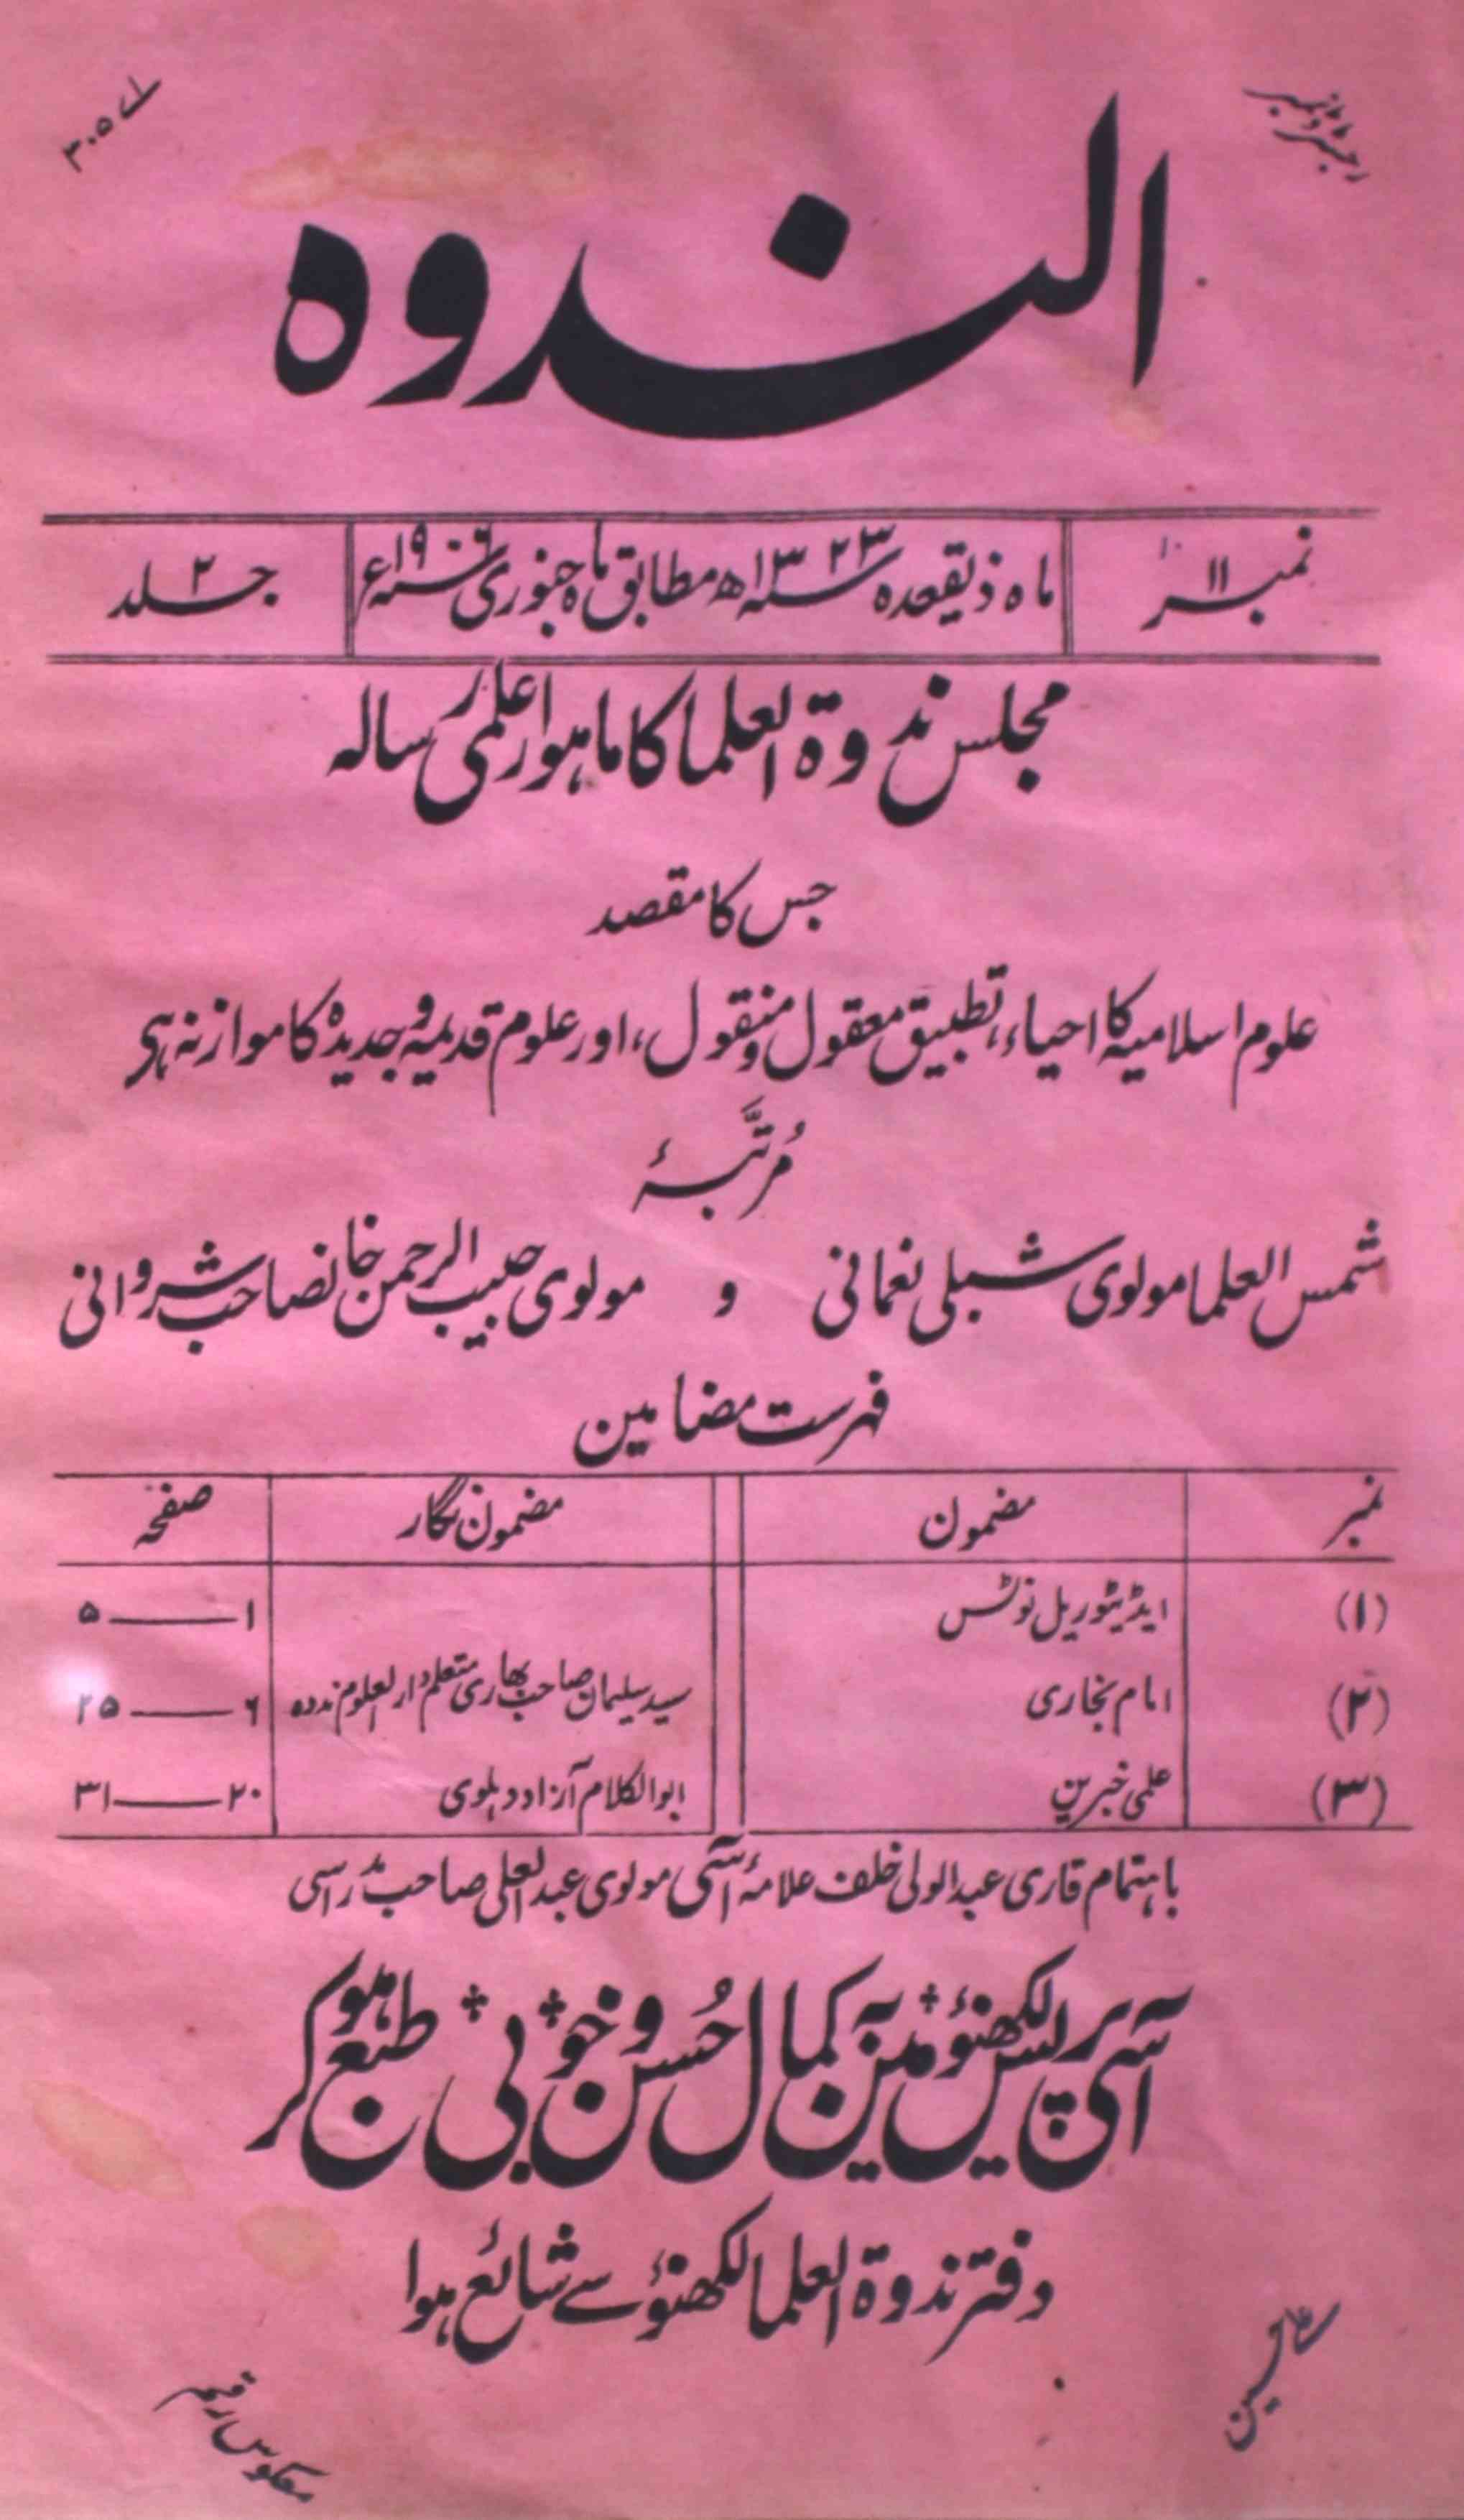 رجسٹرڈ نمبر
اے ۳۰۵
الندوہ
نمبر ۱۱ | ماہ ذیقعدہ سنہ ۱۳۲۳ھ مطابق ماہ جنوری سنہ ۱۹۰۶ء | جلد ۲
مجلس ندوۃ العلما کا ماہوار علمی رسالہ
جس کا مقصد
علوم اسلامیہ کا احیاء، تطبیق معقول و منقول، اور علوم قدیمہ و جدیدہ کا موازنہ ہی
مُرتَّبۂ
شمس العلما مولوی شبلی نعمانی و مولوی حبیب الرحمن خانصاحب شروانی
فہرست مضامین
نمبر | مضمون | مضمون نگار | صفحہ
(۱) | ایڈیٹوریل نوٹس | | ۱ — ۵
(۲) | امام بخاری | سید سلیمان صاحب بہاری متعلم دارالعلوم ندوہ | ۶ — ۲۵
(۳) | علمی خبرین | ابوالکلام آزاد دہلوی | ۲۰ — ۳۱
باہتمام قاری عبدالولی خلف علامۂ آسی مولوی عبدالعلی صاحب مدراسی
آسی پریس لکھنؤ مین بہ کمال حُسن و خوبی طبع ہوکر
دفتر ندوۃ العلما لکھنؤ سے شائع ہوا
معکوس رقمہ